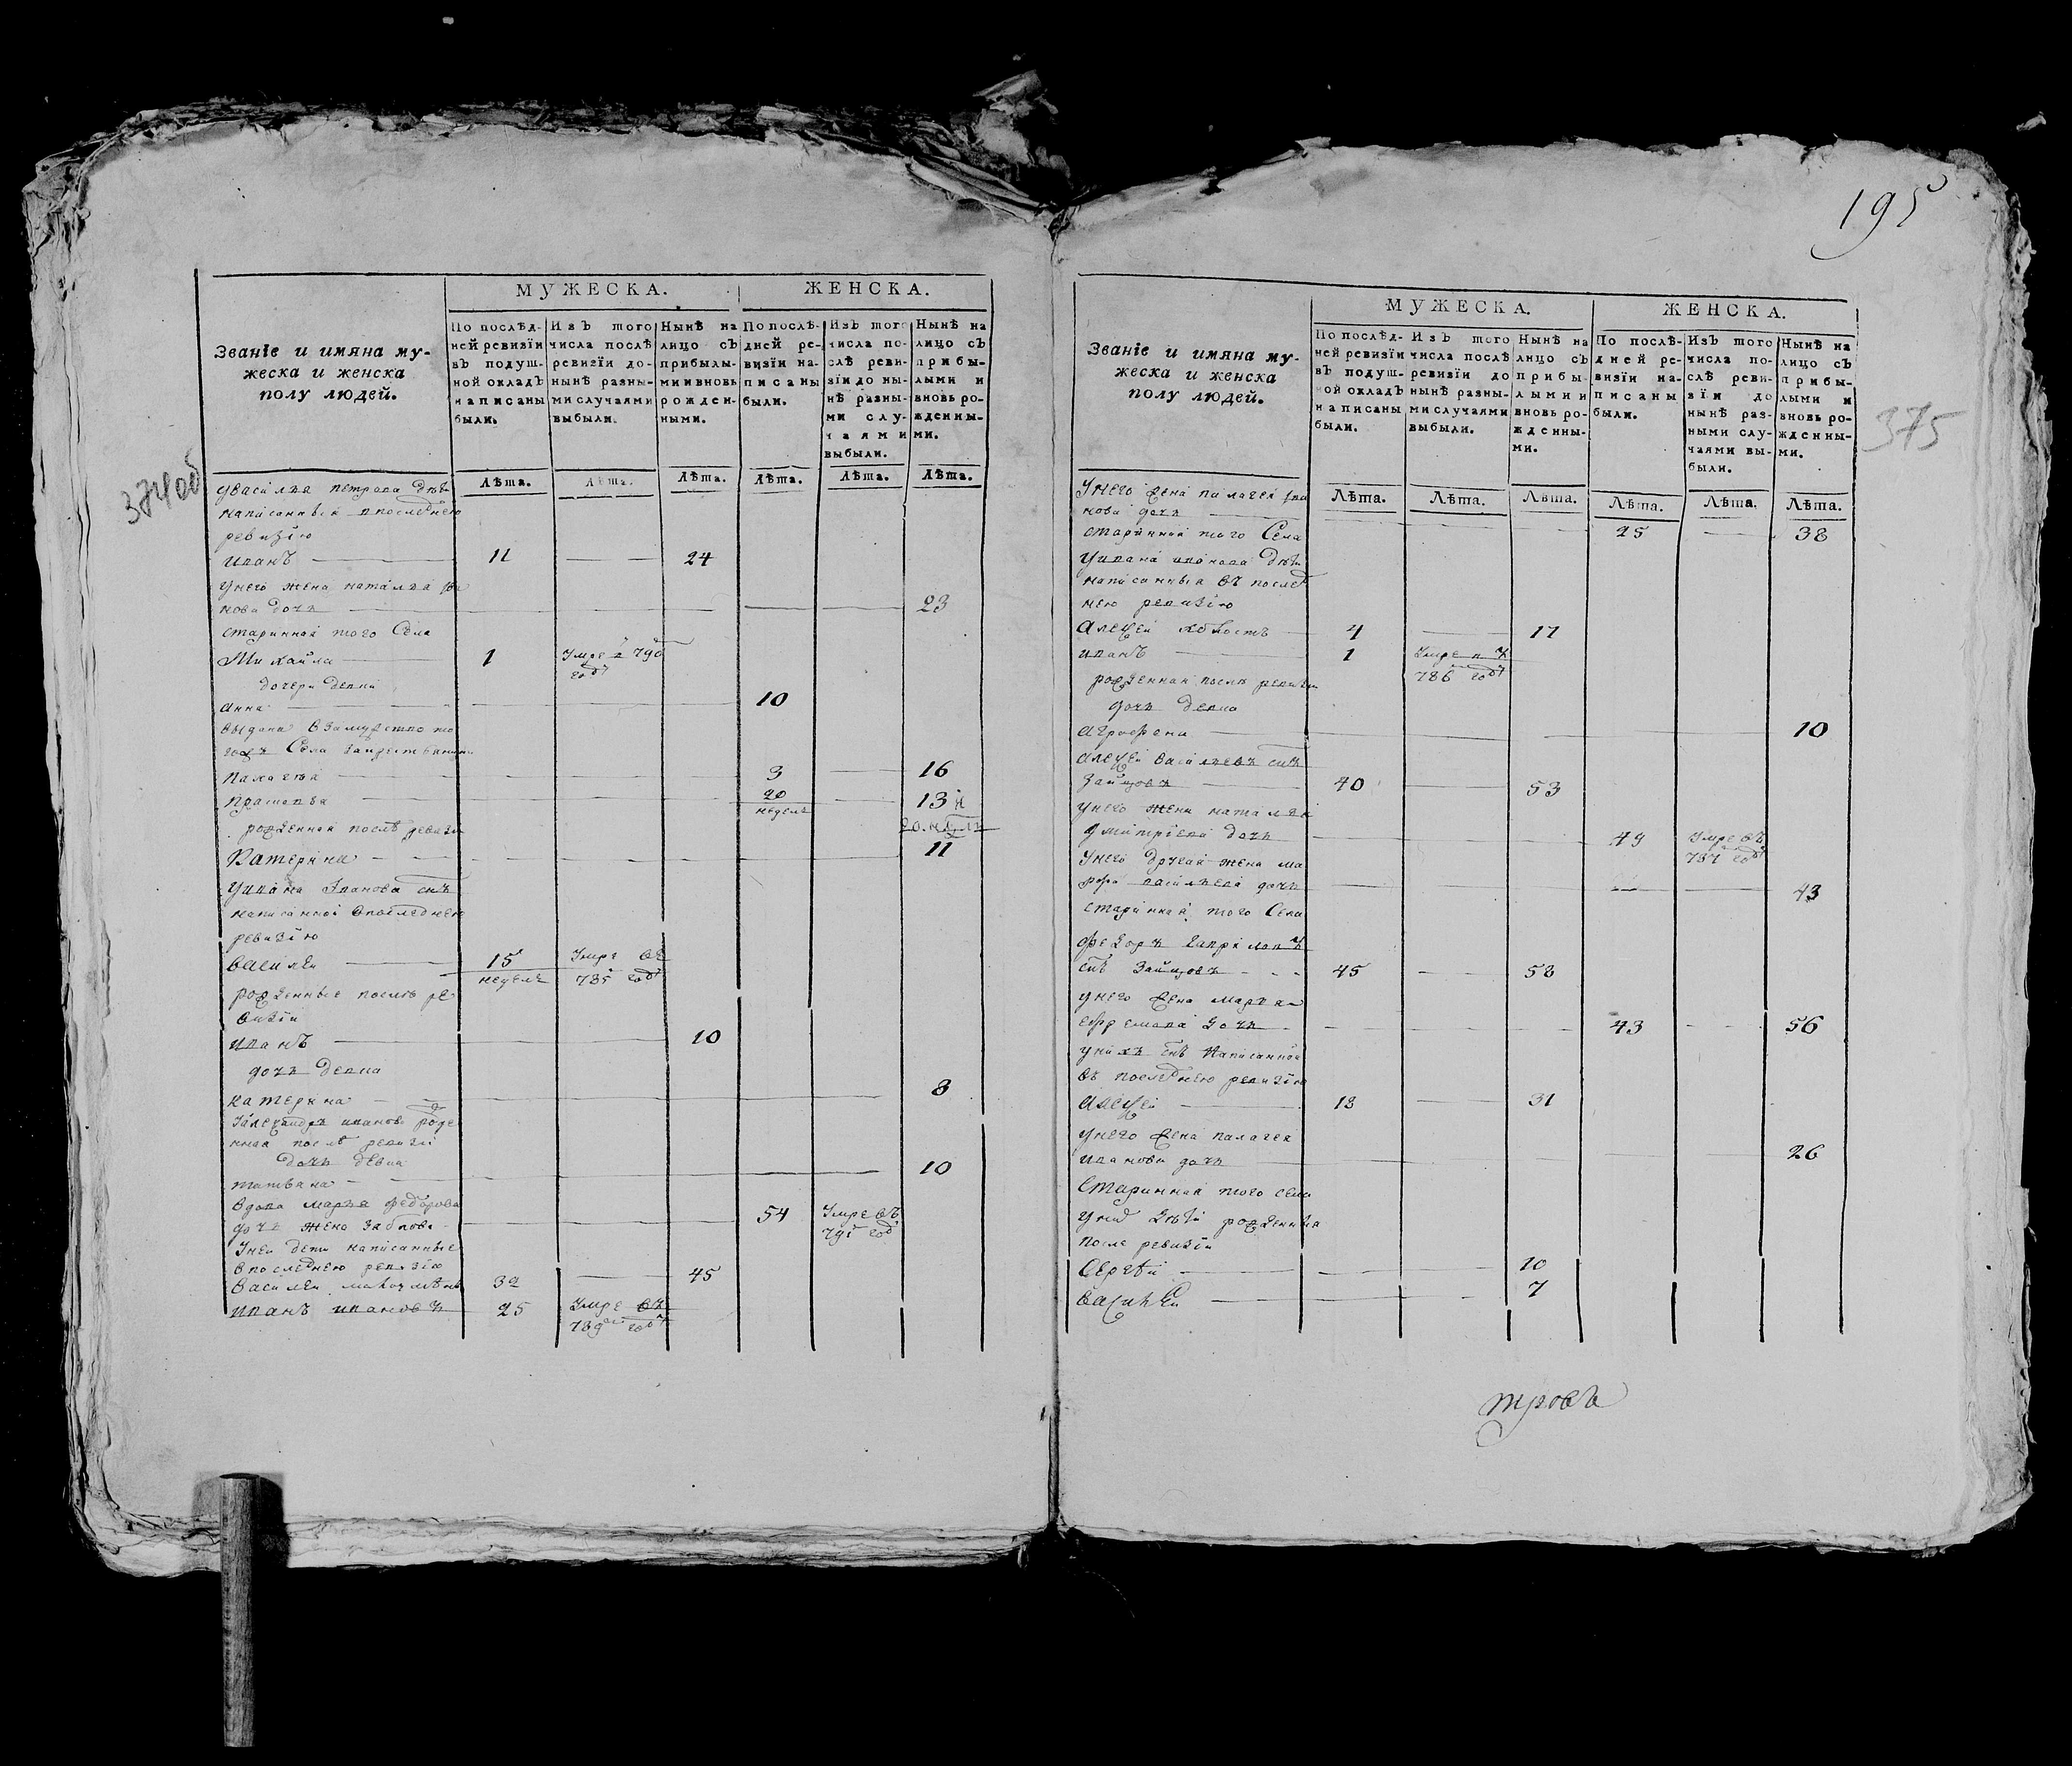 195
374об
375
МУЖЕСКА. ЖЕНСКА.
Званіе и имяна му-
жеска и женска
полу людей.
По послѣд-
ней ревизїи
въ подуш-
ной окладъ
написаны
были.
Изъ того
числа послѣ
ревизїи до-
нынѣ разны-
ми случаями
выбыли.
Нынѣ на
лицо съ
прибылы-
ми и вновь
рожден-
ными.
По послѣ-
дней ре-
визїи на-
писаны
были.
Изъ того
числа по-
слѣ реви-
зїи до ны-
нѣ разны-
ми слу-
чаями
выбыли.
Нынѣ на
лицо съ
прибы-
лыми и
вновь ро-
жденны-
ми.
Лѣта. Лѣта. Лѣта. Лѣта. Лѣта. Лѣта.
у василья петрова дѣти
написанныя в последнею
ревизїю
иванъ 11 24
у него жена наталья
нова дочь 23
старинная того Села
Михайла 1 Умре в 790
году
дочери девки
анна 10
выдана взамужство то
гожъ Села за крестьянина
палагея 3 16
прасковья 20 13 и
неделъ 20 недель
рожденная послѣ ревизи
Катерина 11
у ивана Іванова сынъ
написанной в последнею
ревизїю
василей 15 Умре въ
неделъ 785 году
рожденные после ре
визїи
иванъ 10
дочь девка
катерина 8
У александра иванова рожде
нная послѣ ревизїи
дочь девка
татьяна 10
вдова марья федорова
дочь жена 54 Умре въ
791 году
У неи дети написанные
в последнею ревизїю
василеи 32 45
иванъ ивановъ 25 Умре въ
789 году
МУЖЕСКА. ЖЕНСКА.
Званіе и имяна му-
жеска и женска
полу людей.
По послѣд-
ней ревизїи
въ подуш-
ной окладъ
написаны
были.
Изъ того
числа послѣ
ревизїи до
нынѣ разны-
ми случаями
выбыли.
Нынѣ на
лицо съ
прибы-
лыми и
вновь ро-
жденны-
ми.
По послѣ-
дней ре-
визїи на-
писаны
были.
Изъ того
числа по-
слѣ реви-
зїи до
нынѣ раз-
ными слу-
чаями вы-
были.
Нынѣ на
лицо съ
прибы-
лыми и
вновь ро-
жденны-
ми.
Лѣта. Лѣта. Лѣта. Лѣта. Лѣта. Лѣта.
У него жена палагея
нова дочь
старинная того Села 25 38
У ивана иванова дѣти
написанныя въ послед
нею ревизїю
Алексей 4 17
иванъ 1 Умре въ
786 году
рожденная после ревизи
дочь девка
аграфена 10
алексеи васильевъ сынъ
Зайцовъ 40 53
у него жена наталья
дмитрїева дочь 49 Умре въ
787 году
У него другая жена ма
рфа васильева дочь 43
старинная того Села
федоръ гавриловъ
сынъ Зайцовъ 45 58
у него жена марья
ефремова дочь 43 56
у нихъ сынъ написанной
въ последнею ревизїю
Алексеи 18 31
у него жена палагея
иванова дочь 26
Старинная того села
у них дѣти рожденныя
после ревизїи
Сергеи 10
василеи 7
тровъ